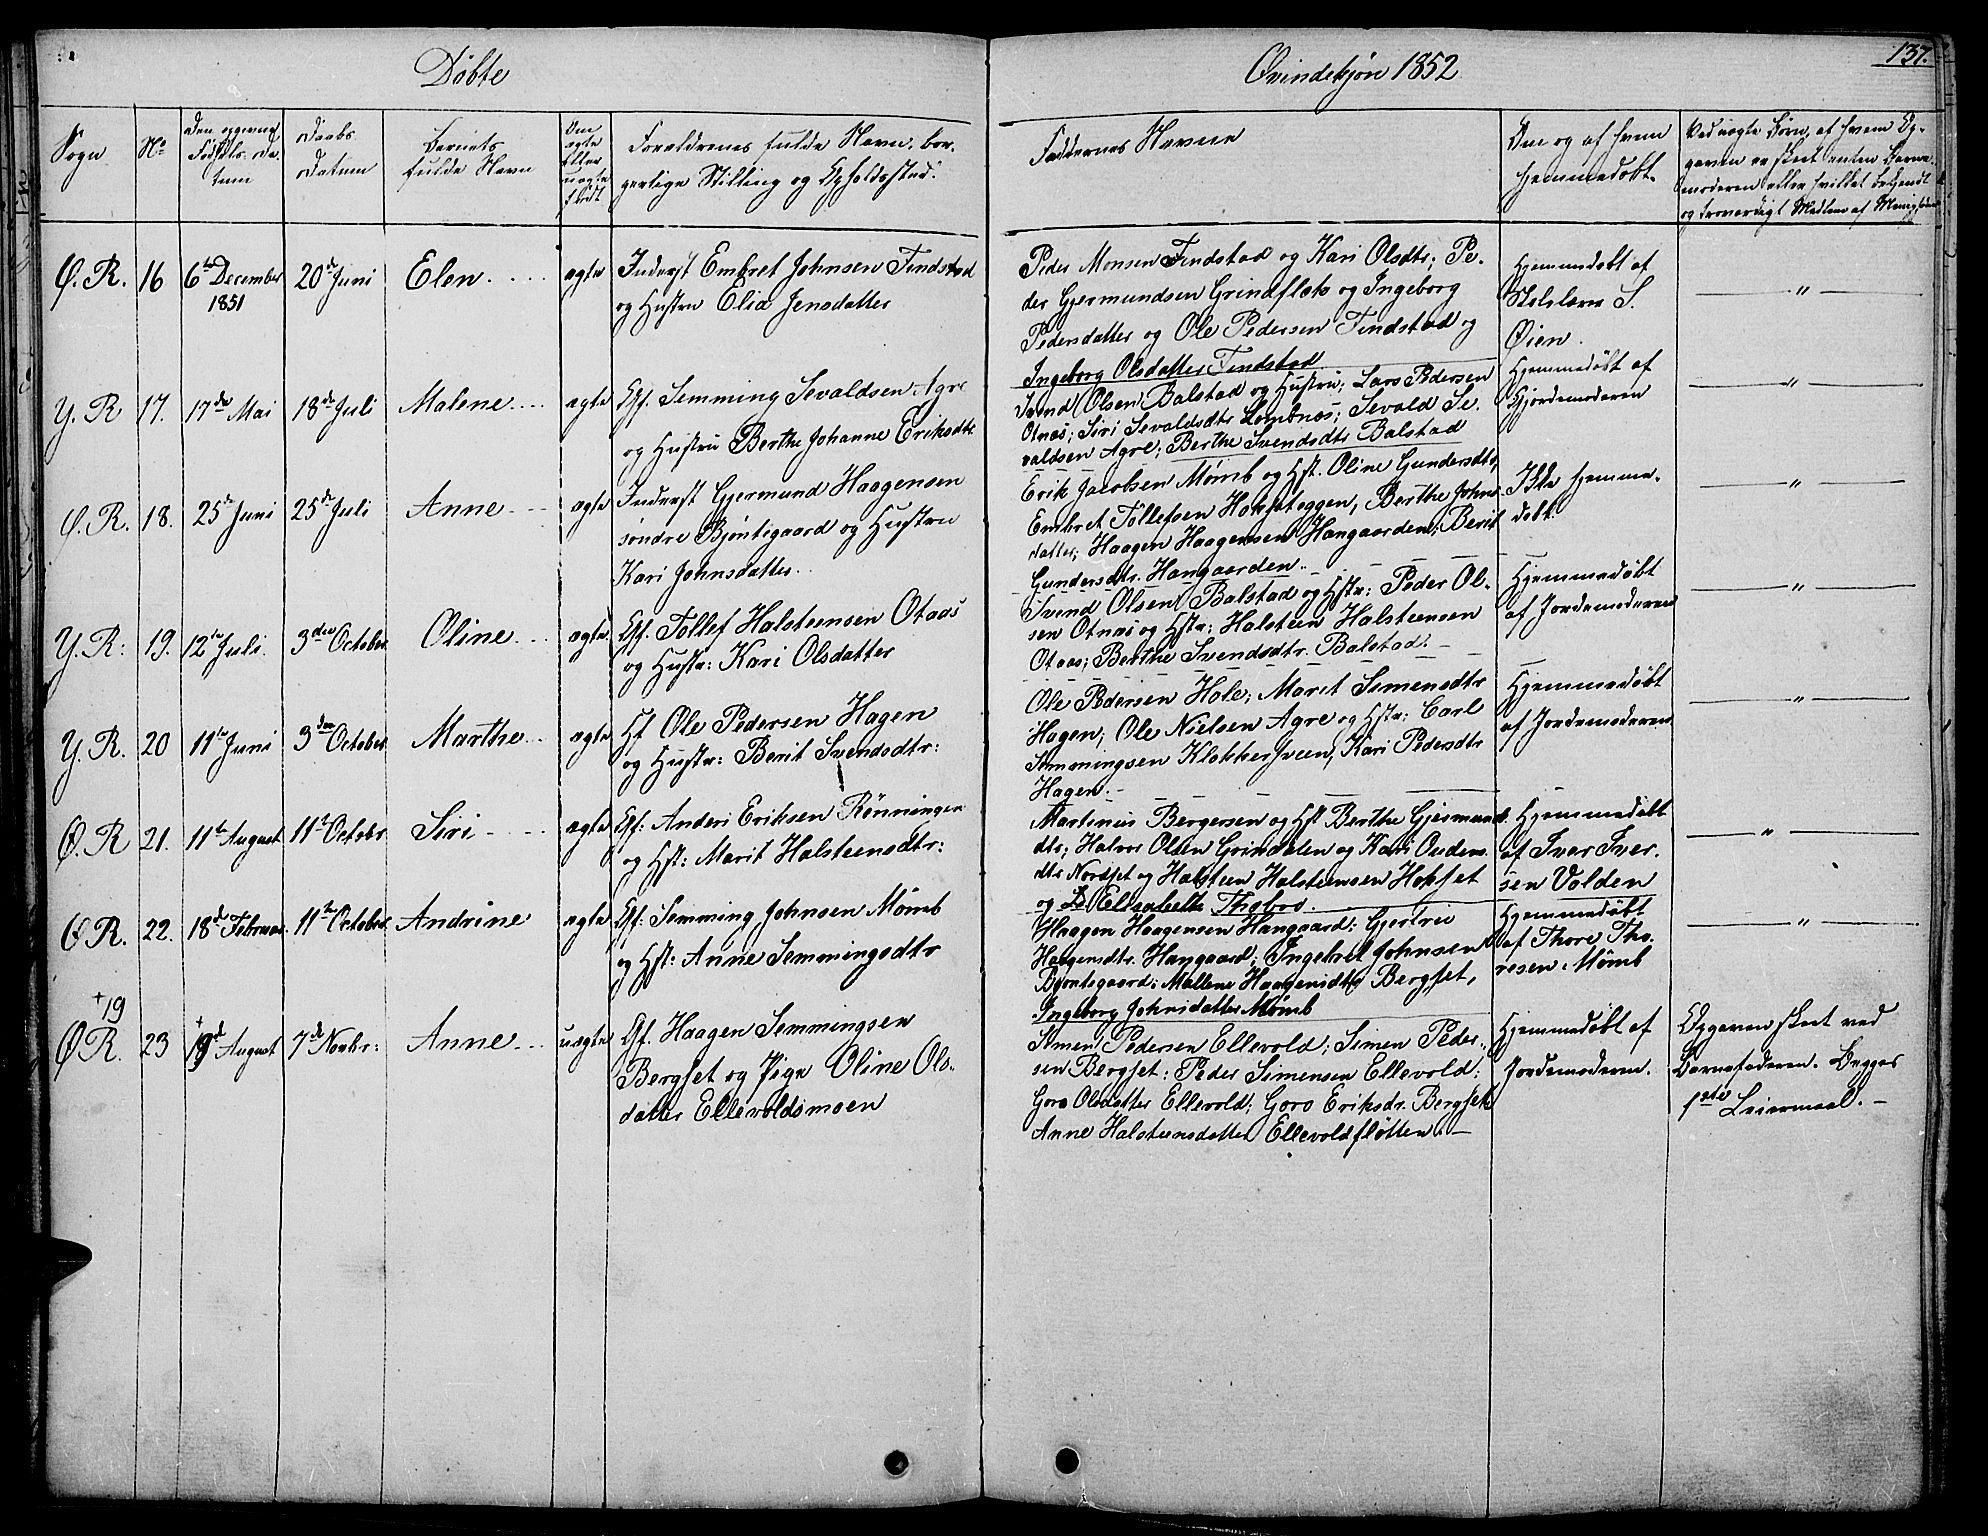 Døbte
Qvindekjøn 1852
137.
Sogn
No
Den opgivne Fødsels-Datum
Daabs Datum
Barnets fulde Navn
Om ægte eller uægte født
Forældrenes fulde Navn, borgerlige Stilling og Opholdssted.
Faddernes Navne
Om og af hvem hjemmedøbt.
Ved uægte Børn, af hvem Opgaven er skeet enten Barnemoderen eller hvilket bekjendt og troværdigt Medlem af Menigheden
Ø. R. 16 6te December 1851 20de Juni Elen ægte
Inderst Embret Johnsen Findstad
og Hustru Elia Jensdatter
Peder Monsen Findstad og Kari Olsdtr; Pe-
der Gjermundsen Grindflek og Ingeborg
Pedersdatter og Ole Pedersen Findstad og
Ingeborg Olsdatter Findstad
Hjemmedøbt af
Skolelærer S.
Øien.
"
Y. R 17. 17de Mai 18de Juli Malene ægte
Gf. Semming Sevaldsen Agre
og Hustru Berthe Johanne Eriksdtr
Svend Olsen Balstad og Hustru; Lars Pedersen
Otnæs; Siri Sevaldsdtr Lombnæs; Sevald Se-
valdsen Agre; Berthe Svendsdtr Balstad
Hjemmedøbt af
Gjordemoderen
"
Ø. R. 18. 25de Juni 25de Juli Anne ægte
Inderst Gjermund Haagensen
søndre Bjøntegaard og Hustru
Kari Johnsdatter
Erik Jacobsen Mømb og Hst. Oline Gundersdtr;
Embret Tollefsen Hokseteggen, Berthe Johns-
datter; Haagen Haagensen Hangaarden; Berit
Gundersdtr. Hangaarden.
Ikke hjemme-
døbt.
"
Y. R: 19. 12te Juli 3den October Oline ægte
Gf. Tollef Halsteensen Otaas
og Hustr: Kari Olsdatter
Svend Olsen Balstad og Hstr: Peder Ol-
sen Otnæs og Hstr: Halsteen Halsteensen
Otaas; Berthe Svendsdtr. Balstad.
Hjemmedøbt
af Jordemoderen
"
Y. R. 20 11te Juni 3den October Marthe ægte
Gf Ole Pedersen Hagen
og Hustr: Berit Svendsdtr:
Ole Pedersen Hole; Marit Simensdtr
Hagen; Ole Nielsen Agre og Hstr: Carl
Semmingsen Klokkerhveen, Kari Pedersdtr
Hagen.
Hjemmedøbt
af Jordemoderen
"
Ø. R 21. 11te August 11te Octobr Siri ægte
Gf: Anders Eriksen Rønningen
og Hst: Marit Halsteensdtr:
Martinus Bergersen og Hst Berthe Gjermunds-
dtr; Halvor Olsen Grindalen og Kari Oudens-
dtr Nordset og Halsteen Halsteensen Hokset
og Elisabeth Thobro.
Hjemmedøbt
af Iver Iver-
sen Volden
"
Ø R. 22. 18de Februar 11te October Andrine ægte
Gf: Semming Johnsen Mømb
og Hst: Anne Semmingsdtr
Haagen Haagensen Hangaard; Gjertru
Haagensdtr. Hangaard; Ingebret Johnsen
Bjøntegaard; Mallene Haagensdtr Bergset,
Ingeborg Johnsdatter Mømb
Hjemmedøbt
af Thore Tho-
resen Mømb
"
+19
Ø R. 23 +19de August 7de Novbr: Anne uægte
Gf. Haagen Semmingsen
Bergset og Pige Oline Ols-
datter Ellevoldsmoen
Simen Pedersen Ellevold; Simen Peder-
sen Bergset; Peder Simensen Ellevold;
Goro Olsdatter Ellevold; Goro Eriksdr. Bergset
Anne Halsteensdatter Ellevoldfløtten.
Hjemmedøbt af
Jordemoderen.
Opgaven skeet ved
Barnefaderen. Begges
1ste Leiermaal.